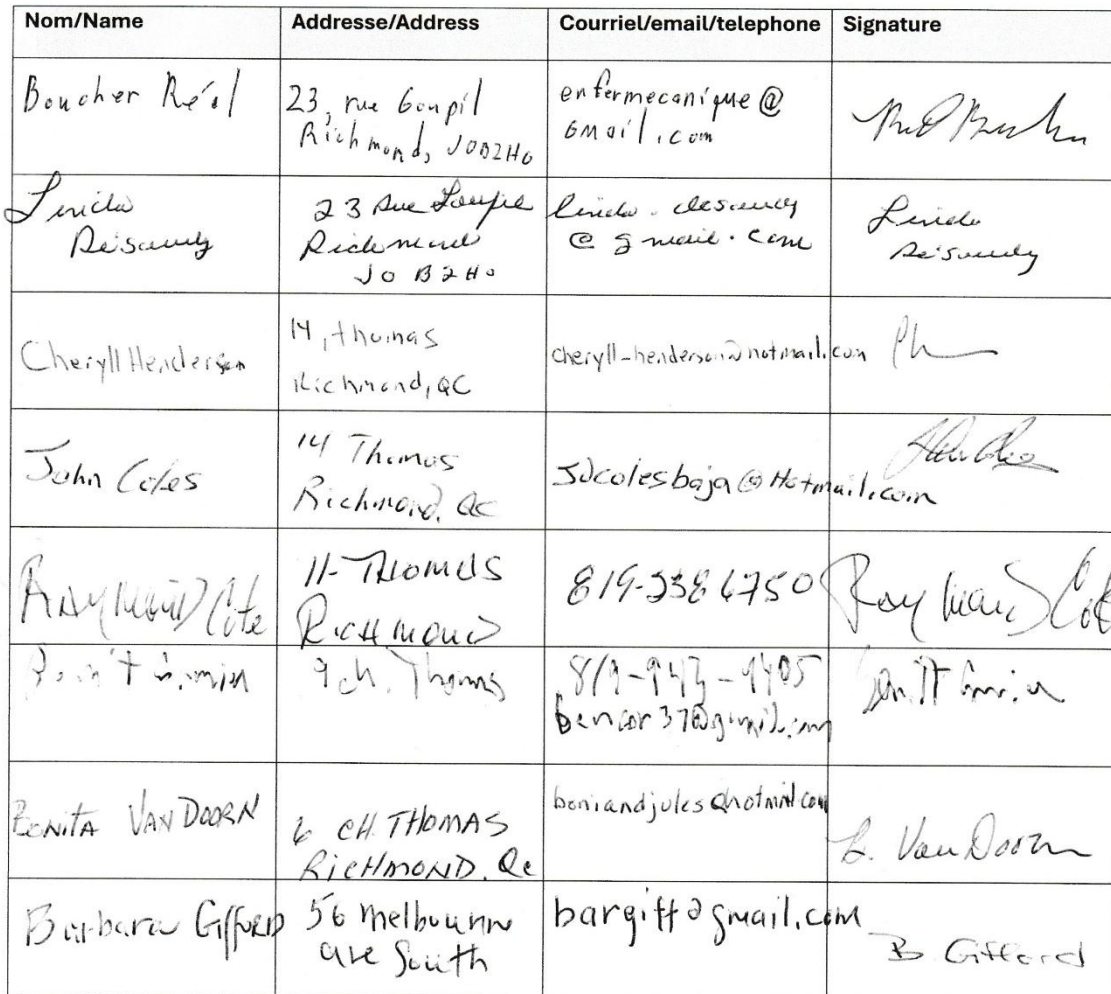 Nom/Name Addresse/Address Courriel/email/telephone Signature
Boucher Réal
23, rue Goupil
Richmond, J0B2H0
enfermecanique@
GMail.com
Linda
23 Rue Goupil
Richmond
J0B2H0
@gmail.com
Linda
Cheryll Henderson
14, thomas
Richmond, QC
cheryll-henderson@hotmail.com
John Coles
14 Thomas
Richmond, QC
jdcolesbaja@Hotmail.com
RAYMOND Cote
11-THOMAS
RICHMOND
Raymond Cote
9 ch. Thomas
bencor37@gmail.com
BONITA VAN DOORN
6 CH. THOMAS
RICHMOND. Qc
boniandjules@hotmail.com
B. Van Doorn
Barbara Gifford
56 Melbourn
ave South
bargiff@gmail.com
B Gifford